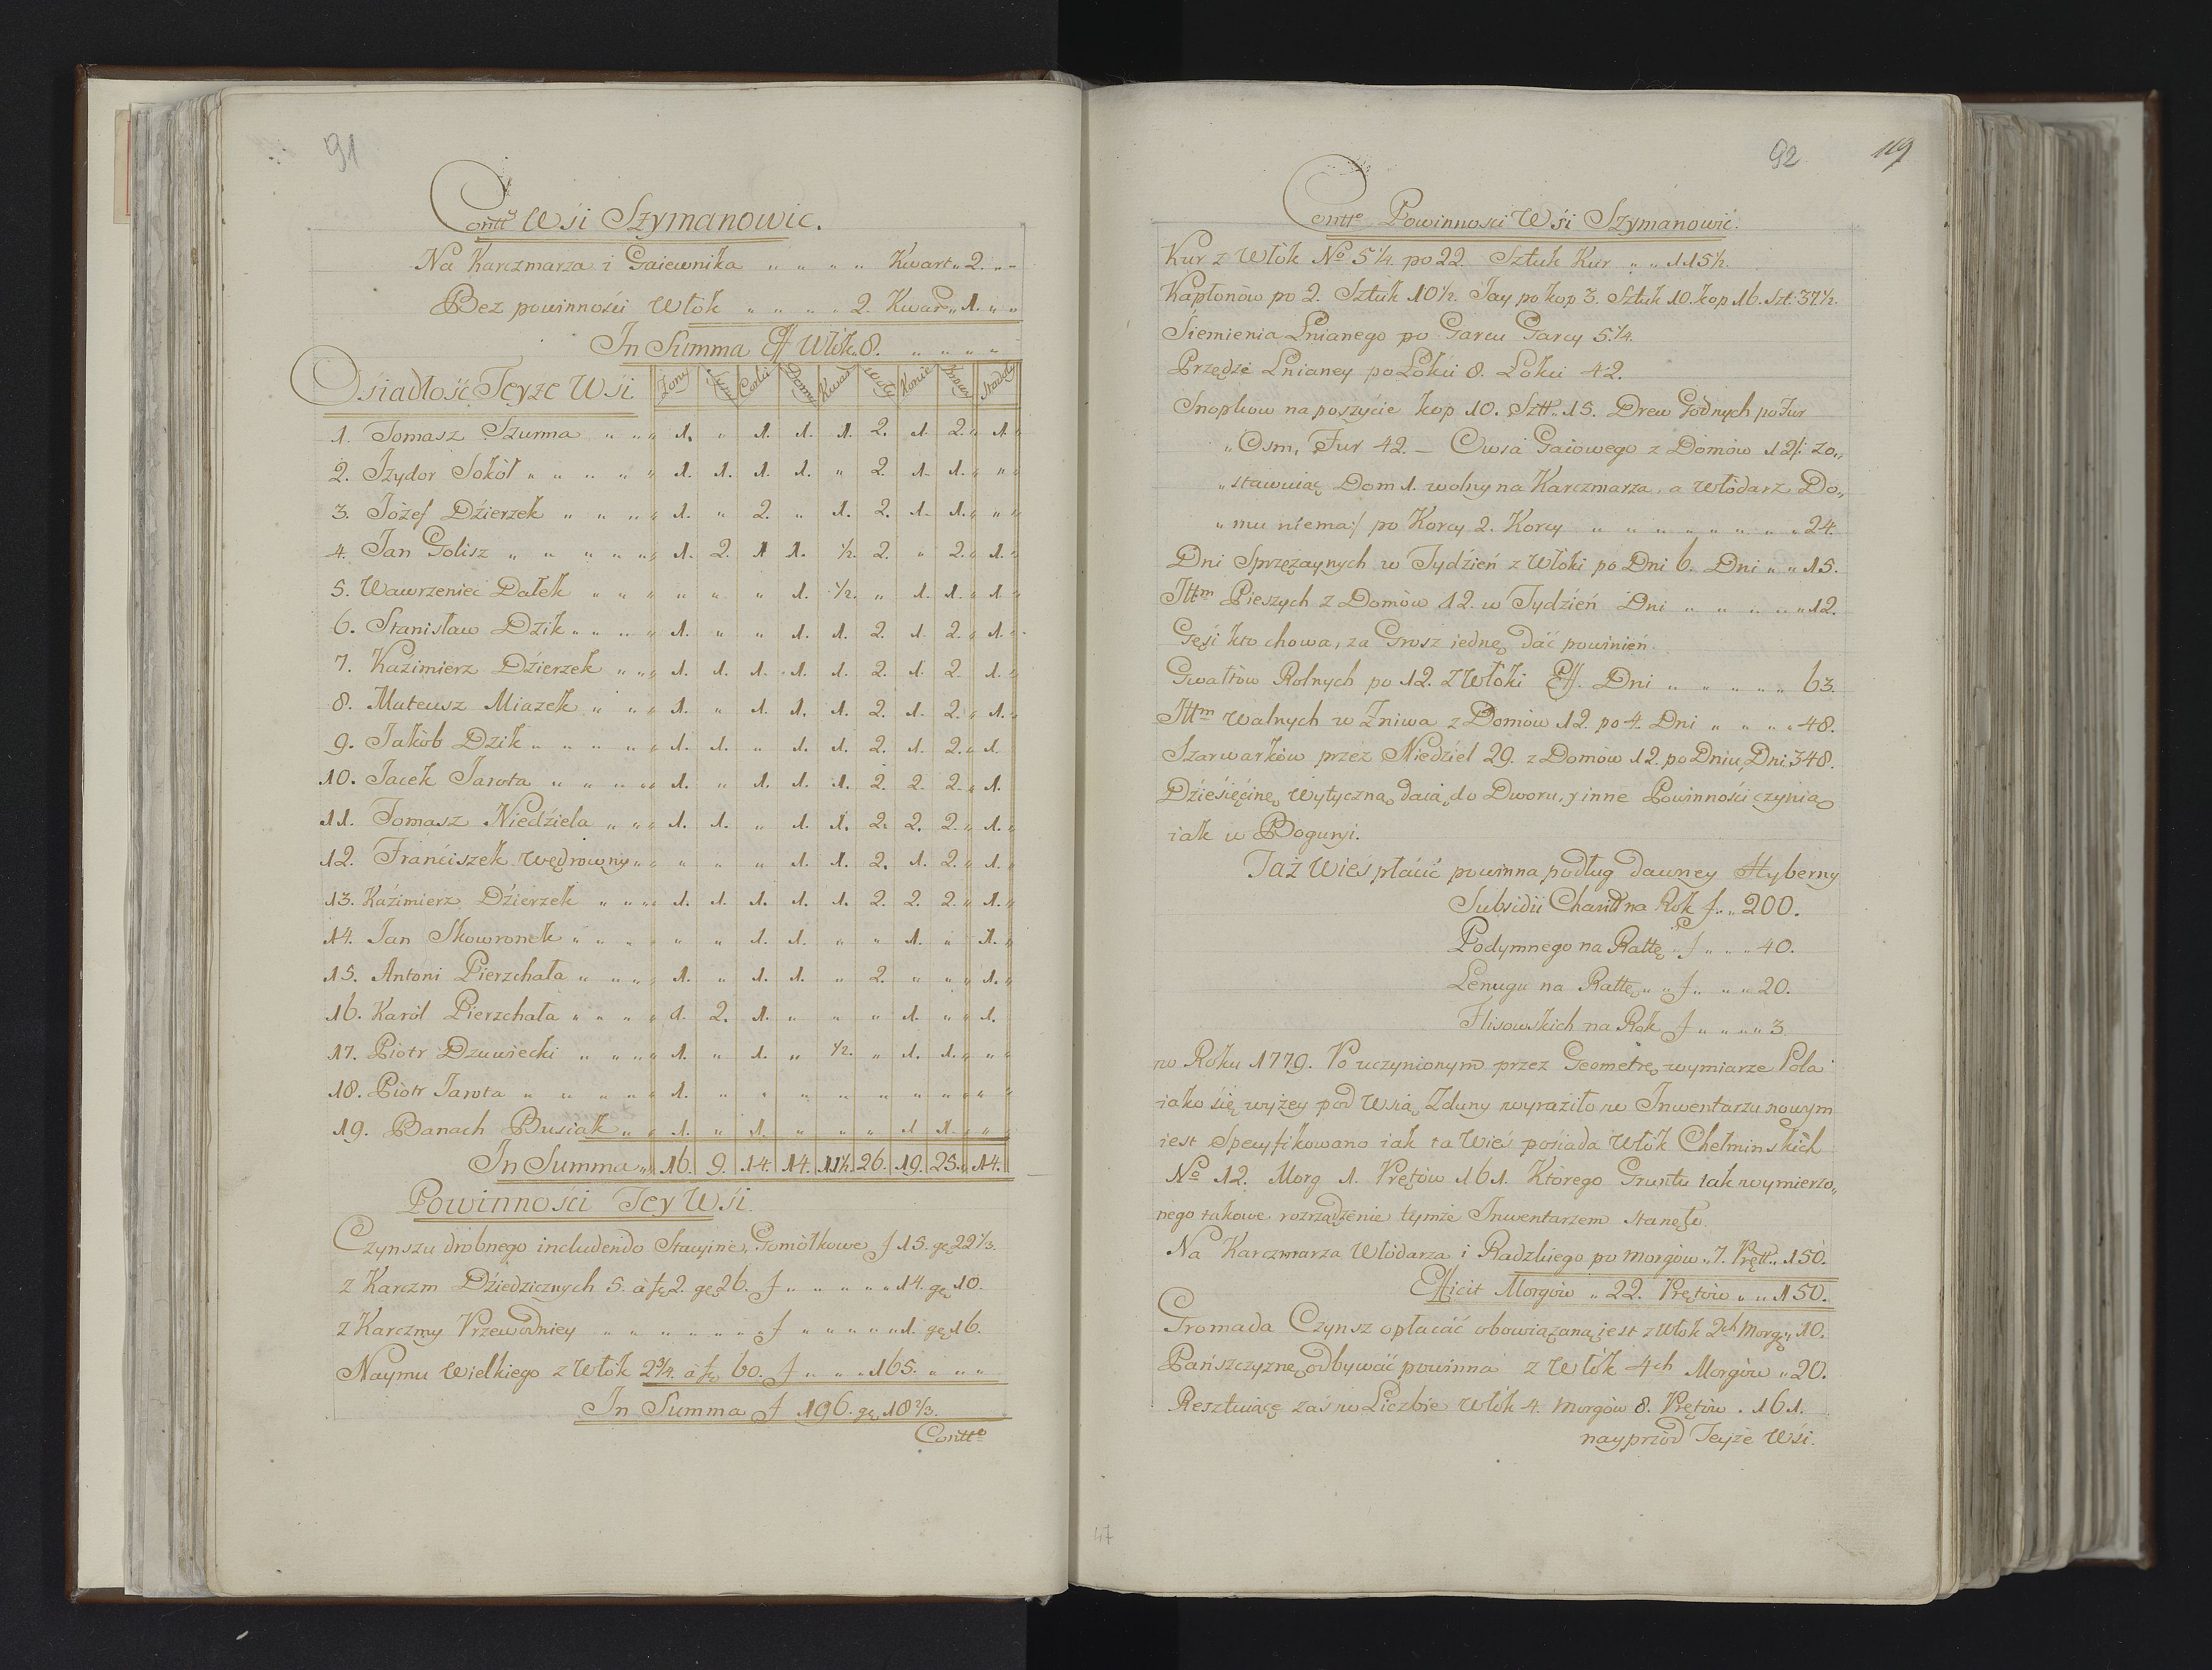 91
Contt. Wśi Szymanowic.
Na Karczmarza i Gaiewnika „ „ „ „ Kwart „ 2. „ -
Bez powinnośći Włok „ „ „ „ 2. Kwar „ 1. „ „
In Summa Eff Włók. 8. „ „ „ „
Osiadłość Teyże Wsi Żony Syny Corki Domy Kwar Woły Konie Krowy Stodoły
1. Tomasz Szurma „ „ „ 1. „ 1. 1. 1. 2. 1. 2. „ 1. „
2. Jzydor Sokół „ „ „ „ „ 1. 1. 1. 1. „ 2. 1. 1. „ „ „
3. Józef Dźierzek „ „ „ „ 1. „ 2. „ 1. 2. 1. 1. „ „ „
4. Jan Golisz „ „ „ „ „ 1. 2. 1 1. ½. 2. „ 2. „ 1. „
5. Wawrzeniec Dałek „ „ „ „ „ „ 1. ½. „ 1. 1. „ 1. „
6. Stanisław Dzik „ „ „ „ 1. „ „ 1. 1. 2. 1. 2. „ 1. „
7. Kaźimierz Dźierzek „ „ „ 1. 1. 1. 1. 1. 2. 1. 2. 1. „
8. Mateusz Miazek „ „ „ 1. „ 1. 1. 1. 2. 1. 2. „ 1. „
9. Jakób Dzik „ „ „ „ „ 1. 1. „ 1. 1. 2. 1. 2. „ 1.
10. Jacek Jarota „ „ „ „ „ 1. „ 1. 1. 1. 2. 2. 2. „ 1.
11. Tomasz Niedźiela „ „ „ 1. 1. „ 1. 1. 2. 2. 2. „ 1. „
12. Franćiszek Wędrowny „ „ „ „ „ 1. 1. 2. 1. 2. „ 1. „
13. Kaźimierz Dźierzek „ „ „ 1. 1. 1. 1. 1. 2. 2. 2. „ 1. „
14. Jan Skowronek „ „ „ „ „ „ 1. 1. „ „ 1. „ 1. „
15. Antoni Pierzchała „ „ „ „ 1. „ 1. 1. „ 2. „ „ „ 1. „
16. Karól Pierzchała „ „ „ „ 1. 2. 1. „ „ „ 1. „ „ 1.
17. Piotr Dzuwiecki „ „ „ „ 1. „ 1. „ ½. „ 1. 1. „ „ „
18. Piotr Jarota „ „ „ „ „ 1. „ „ „ „ „ „ „ „ „ „
19. Banach Busiak „ „ 1. „ 1. „ „ „ 1 1. „ „ „
In Summa „ 16. 9. 14. 14. 11½. 26. 19. 25. „ 14.
Powinnośći Tey Wśi.
Czynszu drobnego includendo Stacyine, Gomółkowe f 15. gę 22⅓.
z Karczm Dźiedzicznych 5. á fę 2. gę 26. f „ „ „ „ „ 14. gę 10.
z Karczmy Przewodniey „ „ „ „ „ „ „ f „ „ „ „ „ 1. gę 16.
Naymu Wielkiego z Włók 2¾. á fę 60. f „ „ „ 165. „ „ „
In Summa f 196. gę 18⅔.
Contte
92
119
Contte Powinnosci Wśi Szymanowić.
Kur z Włók No 5¼. po 22. Sztuk Kur „ „ 115½.
Kapłonów po 2. Sztuk 10½. Jay po kop 3. Sztuk 10. kop 16. Szt: 37½.
Śiemienia Lnianego po Garcu Garcy 5¼.
Przędźi Lnianey po Łokći 8. Łokći 42.
Snopkow na poszyćie kop 10. Sztt. 15. Drew Godnych po Fur
„ Osm, Fur 42. - Owsa Gaiowego z Domów 12/: zo„
„ stawuiąc Dom 1. wolny na Karczmarza, a Włódarz Do„
„ mu niema:/ po Korcy 2. Korcy „ „ „ „ „ „ „ „ 24.
Dni Sprzężaynych w Tydźień z Włóki po Dni 6. Dni „ „ 15.
Ittm Pieszych z Domów 12. w Tydźień Dni „ „ „ „ „ 12.
Gęśi kto chowa, za Grosz iednę dáć powinień.
Gwałtów Rolnych po 12. z Włóki Eff. Dni „ „ „ „ „ 63.
Ittm walnych w Żniwa z Domów 12. po 4. Dni „ „ „ „ 48.
Szarwarków przez Niedźiel 29. z Domów 12. po Dniu, Dni 348.
Dźieśięćinę Wytyczną daią do Dworu, y inne Powinnośći czynią
iak w Boguryi.
Taż Wieś płáćić powinna podług dawney Hyberny
Subsidii Charitt na Rok f. „ 200.
Podymnego na Rattę „ f „ „ „ 40.
Lenugu na Rattę „ „ f „ „ „ 20.
Flisowskich na Rok f „ „ „ „ 3.
w Roku 1779. Po uczynionym przez Geometrę wymiarze Pola
iako śię wyżey pod Wsią Zduny wyraźiło w Inwentarzu nowym
iest Specyfikowano iak ta Wieś pośiada Włók Chełminskich
No 12. Morg 1. Prętów 161. Którego Gruntu tak wymierzo„
nego takowe rozrządzenie tymże Inwentarzem stanęło.
Na Karczmarza Włódarza i Radzkiego po morgów „ 7. Prętt „ 150.
Efficit Morgów „ 22. Prętów „ „ 150.
Gromada Czynsz opłacáć obowiązana jest z Włok 2ch Morg „ 10.
Pańszczyznę odbywáć powinna z Włók 4ch Morgów „ 20.
Resztuiące zaś w Liczbie Włók 4. morgów 8. Prętów . 161.
nayprzód Teyże Wśi.
47